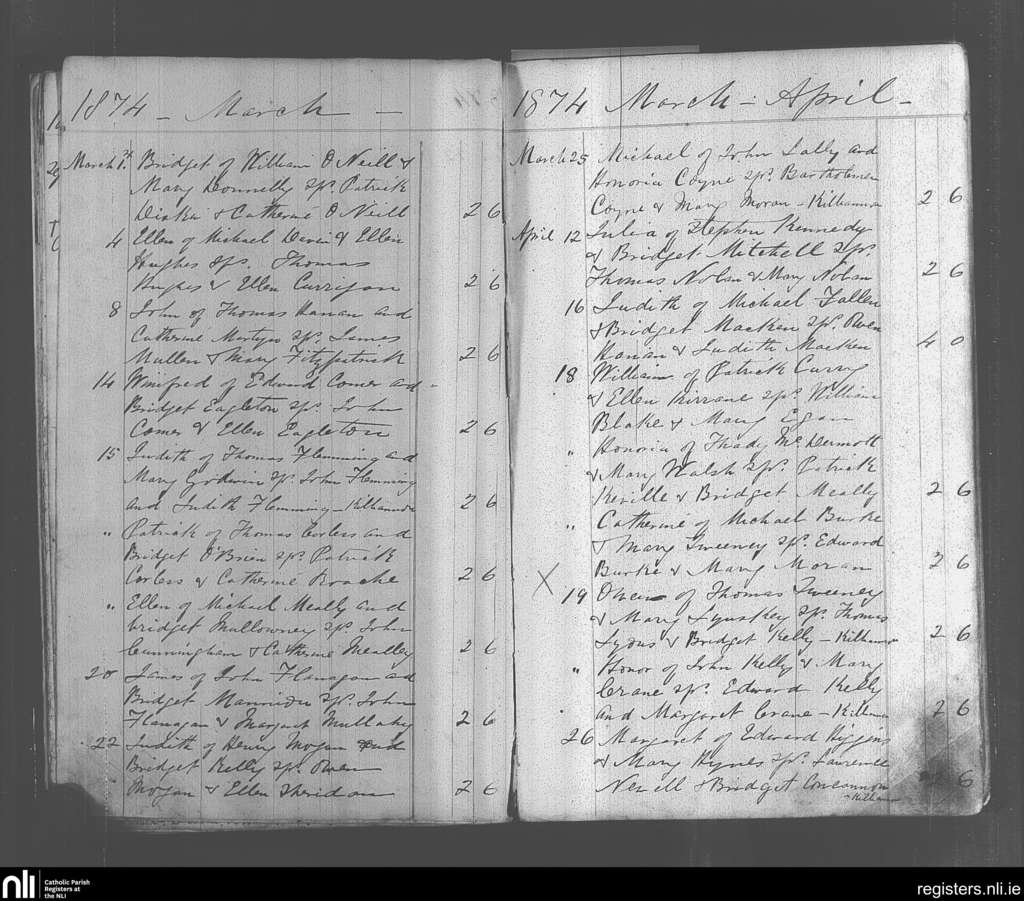 1874 – March –
March 1st Bridget of William O Neill &
Mary Donnelly Sps. Patrick
& Catherine O Neill 2 6
4 Ellen of Michael & Ellen
Hughes Sps. Thomas
Hughes & Ellen Currigan 2 6
8 John of Thomas Hanan and
Catherine Martyn Sps. James
Mullen & Mary Fitzpatrick 2 6
14 Winifred of Edward Comer and
Bridget Eagleton Sps. John
Comer & Ellen Eagleton 2 6
15 Judith of Thomas Flemming and
Mary Godwin Sps. John Flemming
and Judith Flemming – 2 6
" Patrick of Thomas Corless and
Bridget O'Brien Sps. Patrick
Corless & Catherine Roache 2 6
" Ellen of Michael Meally and
bridget Mullowney Sps. John
Cunningham & Catherine Mealley 2 6
20 James of John Flanagan and
Bridget Mannion Sps. John
Flanagan & Margaret Mullahy 2 6
22 Judith of Henry Mogan and
Bridget Kelly Sps. Owen
Mogan & Ellen Sheridan 2 6
1874 March – April –
March 25 Michael of John Lally and
Honoria Coyne Sps. Bartholomew
Coyne & Mary Moran – 2 6
April 12 Julia of Stephen Kennedy
& Bridget Mitchell Sps.
Thomas Nolan & Mary Nolan 2 6
16 Judith of Michael Fallen
& Bridget Macken Sps. Owen
Hanan & Judith Macken 4 0
18 William of Patrick Curry
& Ellen Kirrane Sps. William
Blake & Mary Egan
" Honoria of Thady McDermott
& Mary Walsh Sps. Patrick
Keville & Bridget Meally 2 6
" Catherine of Michael Burke
& Mary Sweeney Sps. Edward
Burke & Mary Moran 2 6
X 19 Owen of Thomas Sweeney
& Mary Lynskey Sps. Thomas
Lyons & Bridget Kelly – 2 6
" Honor of John Kelly & Mary
Crane Sps. Edward Kelly
and Margaret Crane – 2 6
26 Margaret of Edward Higgins
& Mary Hynes Sps. Lawrence
Nevill & Bridget Concannon 6
nli Catholic Parish
Registers at
the NLI
registers.nli.ie